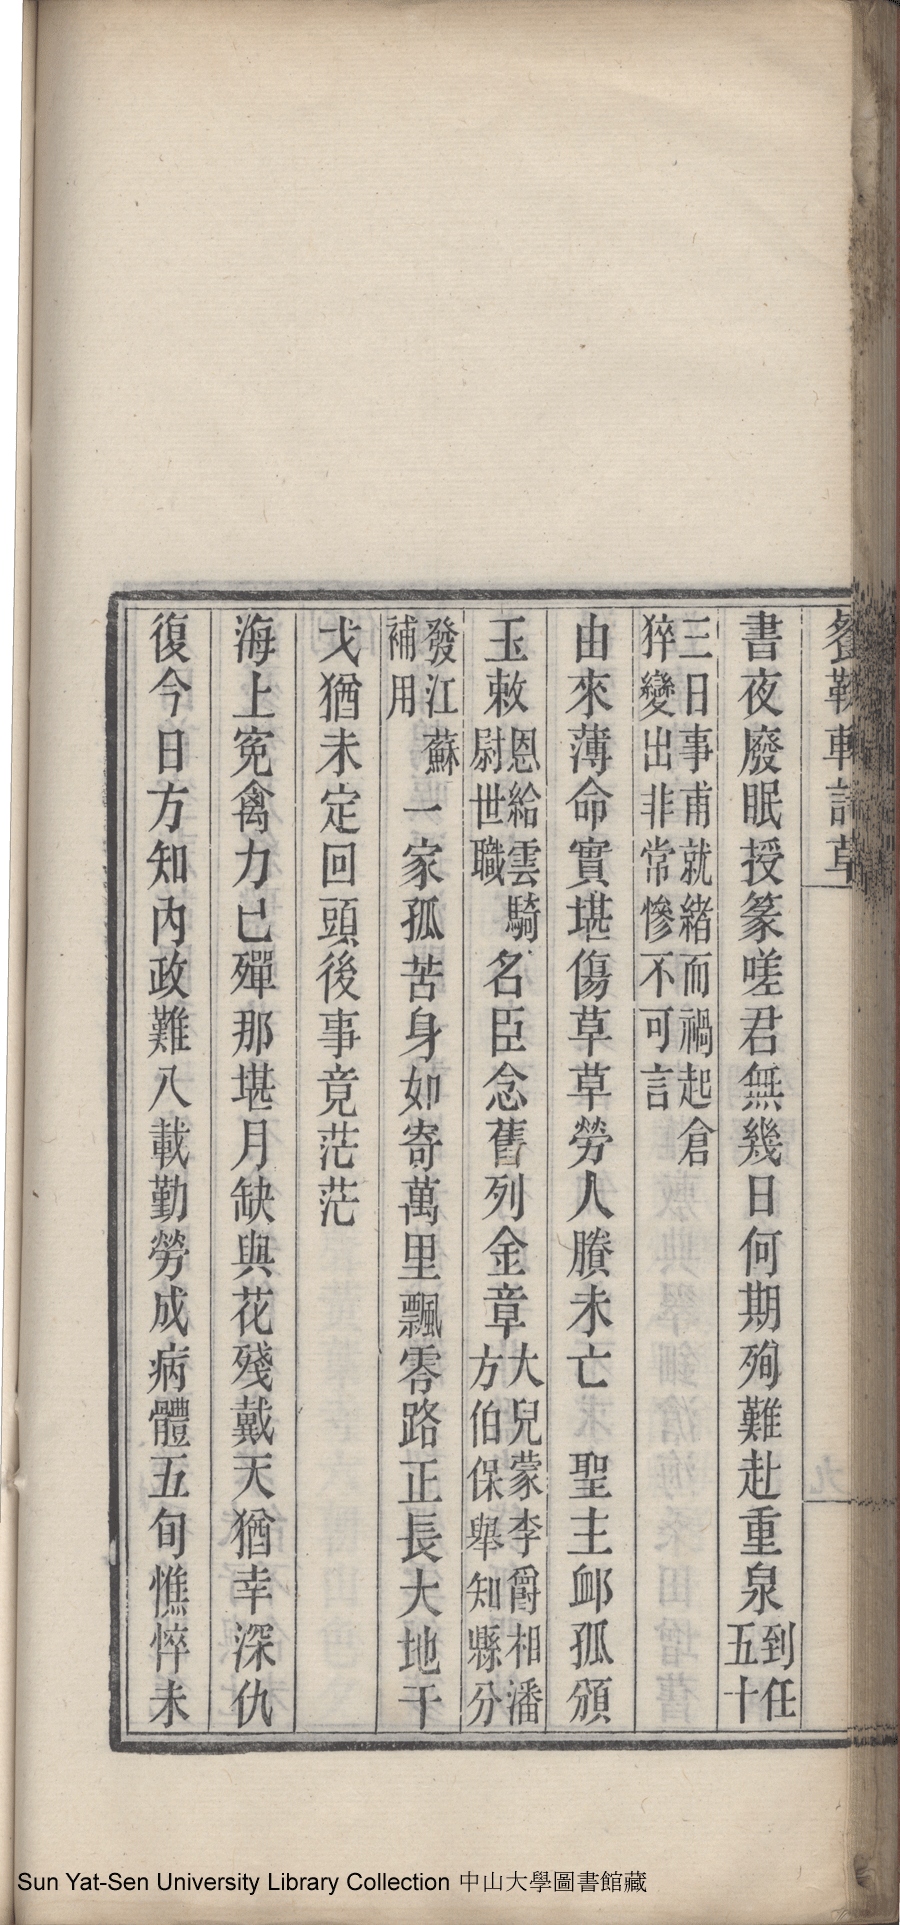 餐鞠軒詩草
書夜廢眠授篆嗟君無幾日何期殉難赴重泉到任五十
三日事甫就緒而禍起倉猝變出非常慘不可言
由來薄命實堪傷草草勞人賸未亡　聖主卹孤頒
玉敕恩給雲騎尉世職名臣念舊列金章大兒蒙李爵相潘方伯保舉知縣分
發江蘇補用一家孤苦身如寄萬里飄零路正長大地干
戈猶未定回頭後事竟茫茫
海上冤禽力已殫那堪月缺與花殘戴天猶幸深仇
復今日方知內政難八載勤勞成病體五旬憔悴未
Sun Yat-Sen University Library Collection 中山大學圖書館藏